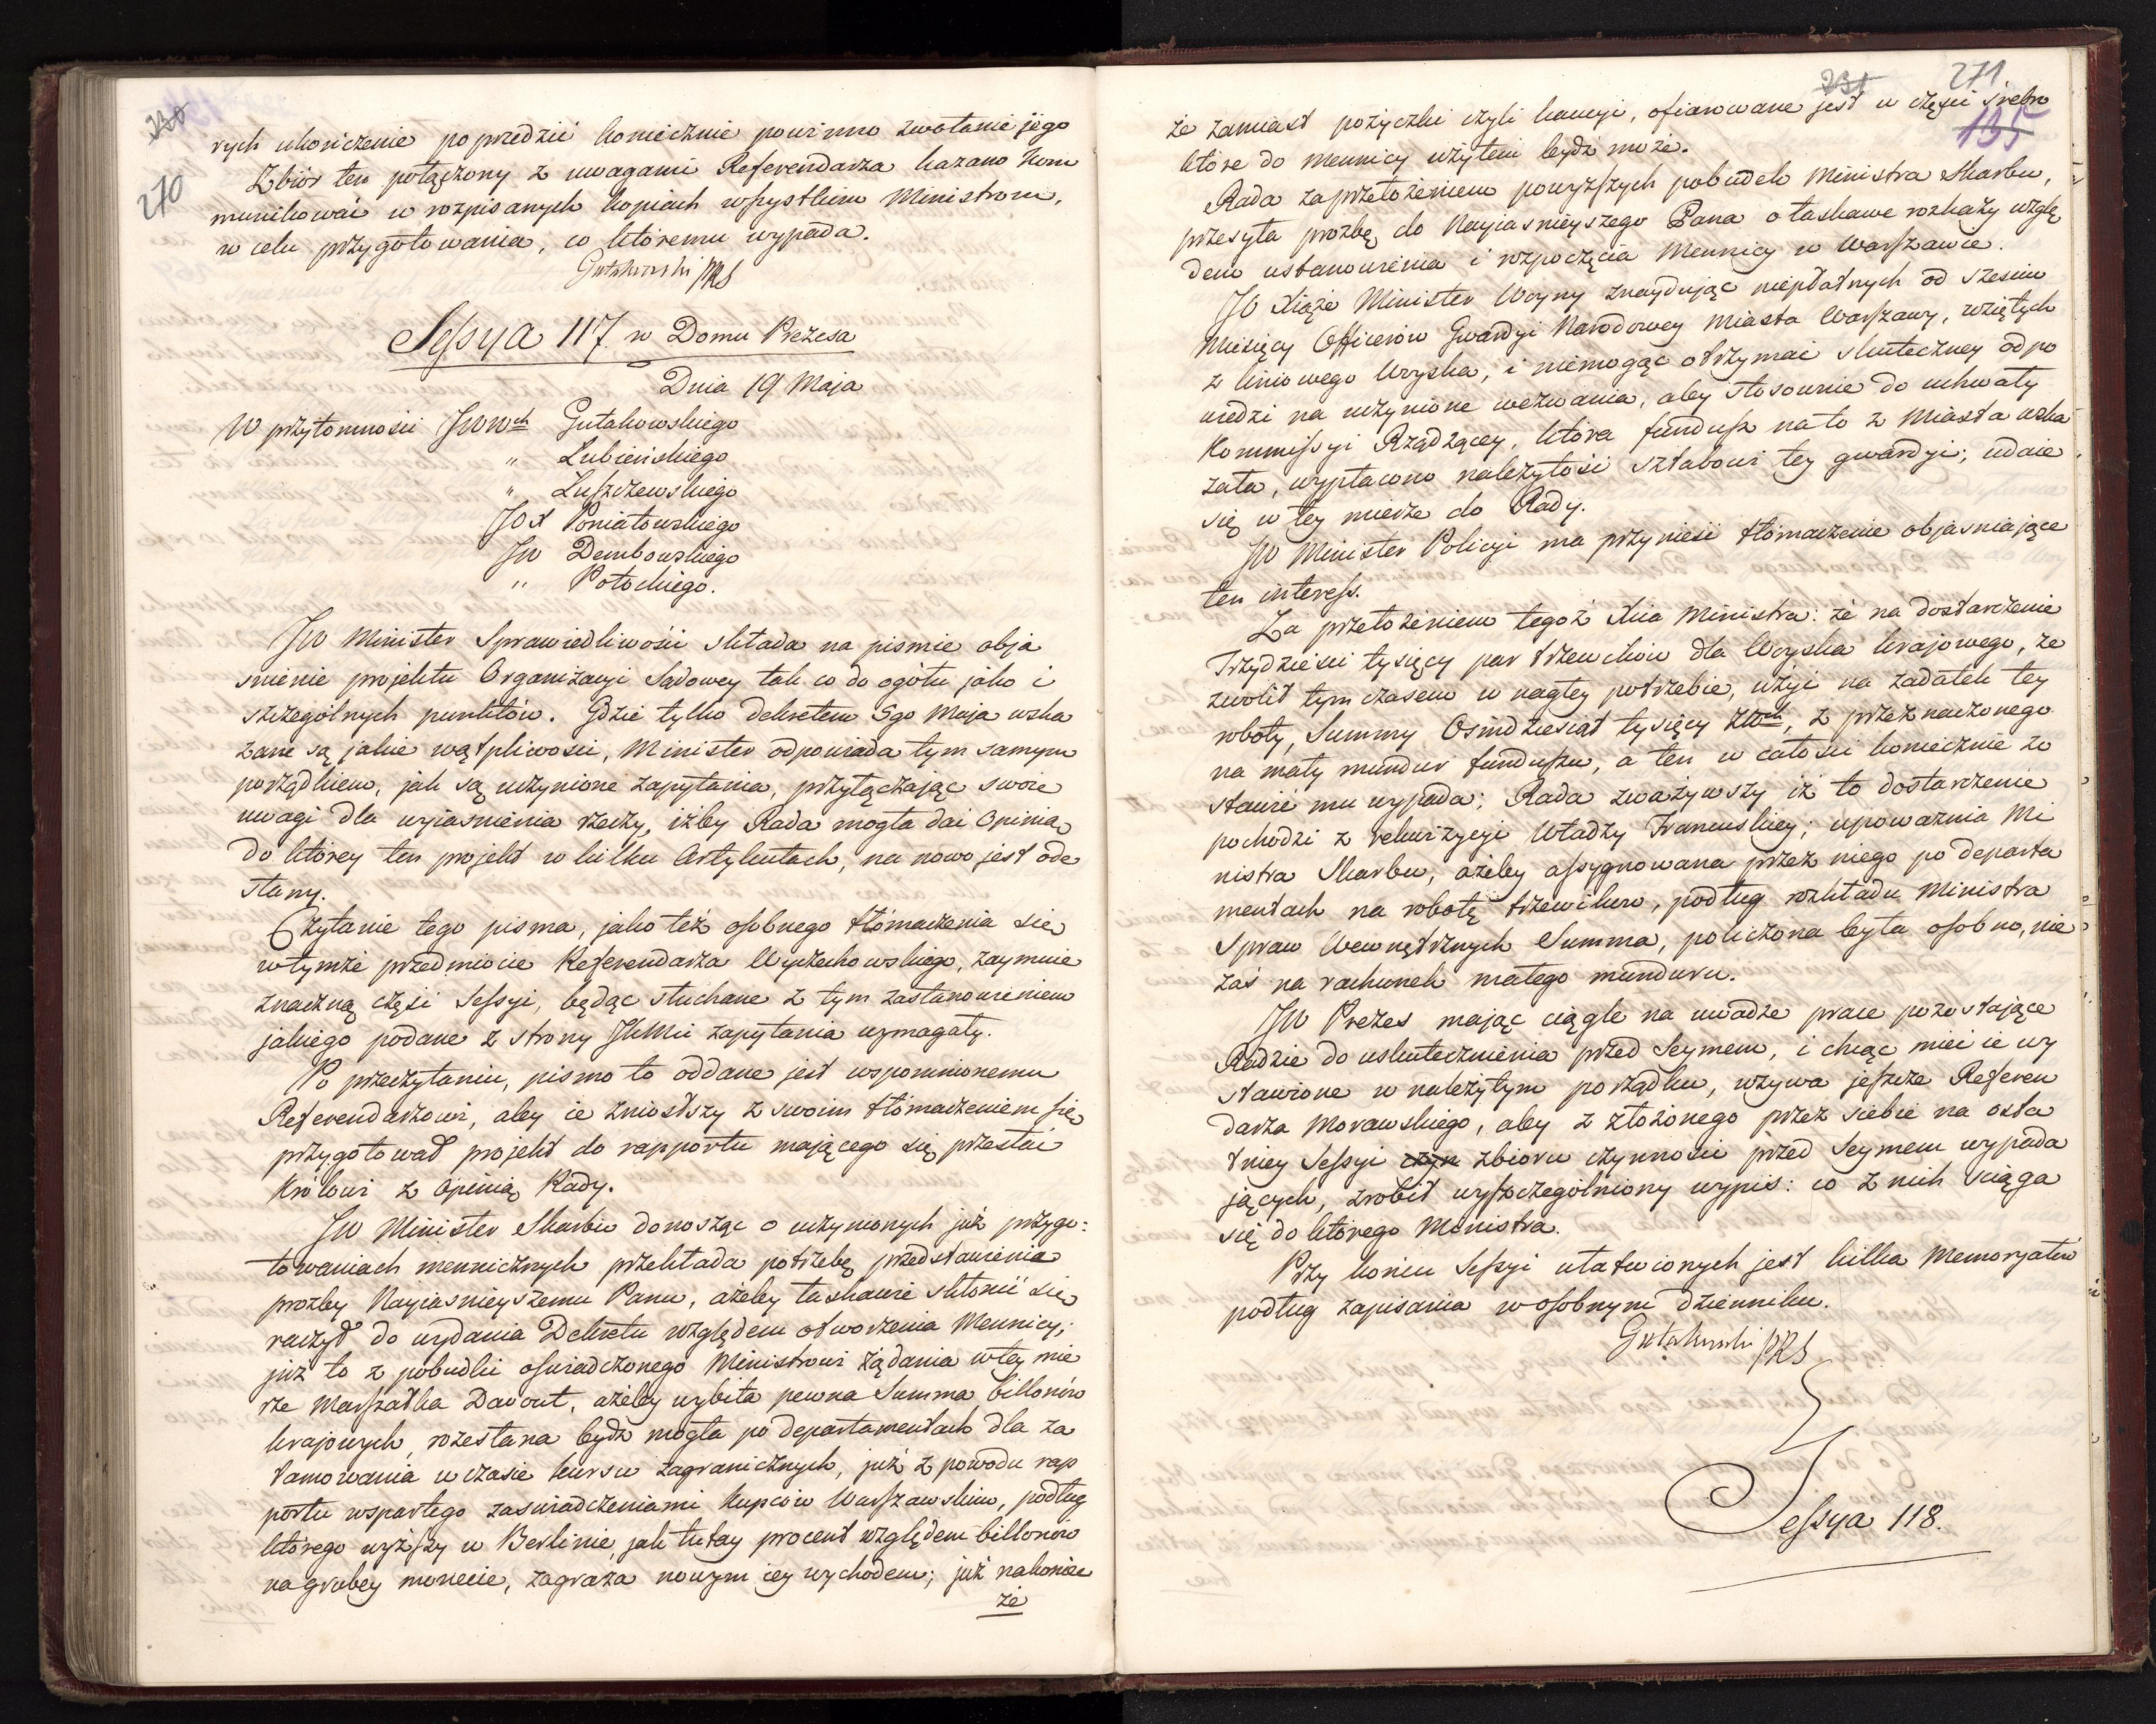 230
270
rych ukończenie poprzedzić koniecznie powinno zwołanie jego
Zbiór ten połączony z uwagami Referendarza kazano kom
munikować w rozpisanych kopiach wszystkim Ministrom,
w celu przygotowania, co któremu wypada.
Gutakowski PRS
Sessya 117. w Domu Prezesa
Dnia 19 Maja
W przytomności JWWch Gutakowskiego
" Lubieńskiego
" Łuszczewskiego
JOX Poniatowskiego
JW Dembowskiego
" Potockiego.
JW Minister Sprawiedliwości składa na pismie obja
śnienie projektu Organizacyi Sądowey tak co do ogółu jako i
szczególnych punktów. Gdzie tylko dekretem 5go Maja wska
zane są jakie wątpliwości, Minister odpowiada tym samym
porządkiem, jak są uczynione zapytania, przyłączając swoie
uwagi dla wyiasnienia rzeczy, iżby Rada mogła dać Opinią
do którey ten projekt w kilku Artykułach, na nowo jest ode
słany.
Czytanie tego pisma, jako też osobnego tłómaczenia się
wtymże przedmiocie Referendarza Wyczechowskiego, zaymuie
znaczną część Sessyi, będąc słuchane z tym zastanowieniem
jakiego podane z strony JKMci zapytania wymagały.
Po przeczytaniu, pismo to oddane jest wspomnionemu
Referendarzowi, aby ie zniosłszy z swoim tłómaczeniem się
przygotował projekt do rapportu mającego się przesłać
Królowi z Opinią Rady.
JW Minister Skarbu donosząc o uczynionych już przygo:
towaniach mennicznych przekłada potrzebę przedstawienia
prozby Nayiasnieyszemu Panu, ażeby łaskawie skłonić się
raczył do wydania Dekretu względem otworzenia Mennicy;
już to z pobudki oświadczonego Ministrowi żądania wtey mie
rze Marszałka Davout, ażeby wybita pewna Summa billonów
krajowych, rozesłana bydź mogła po departamentach dla za
tamowania w czasie kursu zagranicznych, już z powodu rap
portu wspartego zaswiadczeniami Kupców Warszawskim, podług
którego wyższy w Berlinie, jak tutay procent względem billonów
na grubey monecie, zagraża nowym iey wychodem; już nakoniec
że
231
271.
135
że zamiast pożyczki czyli kaucyi, ofiarowane jest w części srebro
które do mennicy użytem bydź może.
Rada zaprzełożeniem powyższych pobudek Ministra Skarbu,
przesyła prozbę do Nayiasnieyszego Pana o łaskawe rozkazy wzglę
dem ustanowienia i rozpoczęcia Mennicy w Warszawie.
JO Xiąże Minister Woyny znayduiąc niepłatnych od szesciu
Miesięcy Officerów Gwardyi Narodowey Miasta Warszawy, wziętych
z liniowego Woyska, i niemogąc otrzymać skuteczney odpo
wiedzi na uczynione wezwania, aby stosownie do uchwały
Kommissyi Rządzącey, która fundusz na to z Miasta wska
zała, wypłacono należytość sztabowi tey gwardyi; udaie
się w tey mierze do Rady.
JW Minister Policyi ma przyniesć tłómaczenie objasniające
ten interess.
Za przełożeniem tegoż Xcia Ministra: że na dostarczenie
Trzydzieści tysięcy par trzewików dla Woyska krajowego, ze
zwolił tymczasem w nagłey potrzebie, użyć na zadatek tey
roboty, Summy Osmdziesiąt tysięcy Złtch, z przeznaczonego
na mały mundur funduszu, a ten w całości koniecznie zo
stawić mu wypada; Rada zważywszy iż to dostarczenie
pochodzi z rekwizycyi Władzy Francuskiey; upoważnia Mi
nistra Skarbu, ażeby assygnowana przez niego po departa
mentach na robotę trzewików, podług rozkładu Ministra
Spraw Wewnętrznych Summa, policzona była osobno, nie
zaś na rachunek małego munduru.
JW Prezes mając ciągle na uwadze prace pozostające
Radzie do uskutecznienia przed Seymem, i chcąc mieć ie wy
stawione w należytym porządku, wzywa jeszcze Referen
darza Morawskiego, aby z złożonego przez siebie na osta
tniey Sessyi czyn zbioru czynności przed Seymem wypada
jących, zrobił wyszczególniony wypis: co z nich sciąga
się do którego Ministra.
Przy końcu Sessyi ułatwionych jest kilka Memoryałów
podług zapisania w osobnym dzienniku.
Gutakowski PRS
Sessya 118.